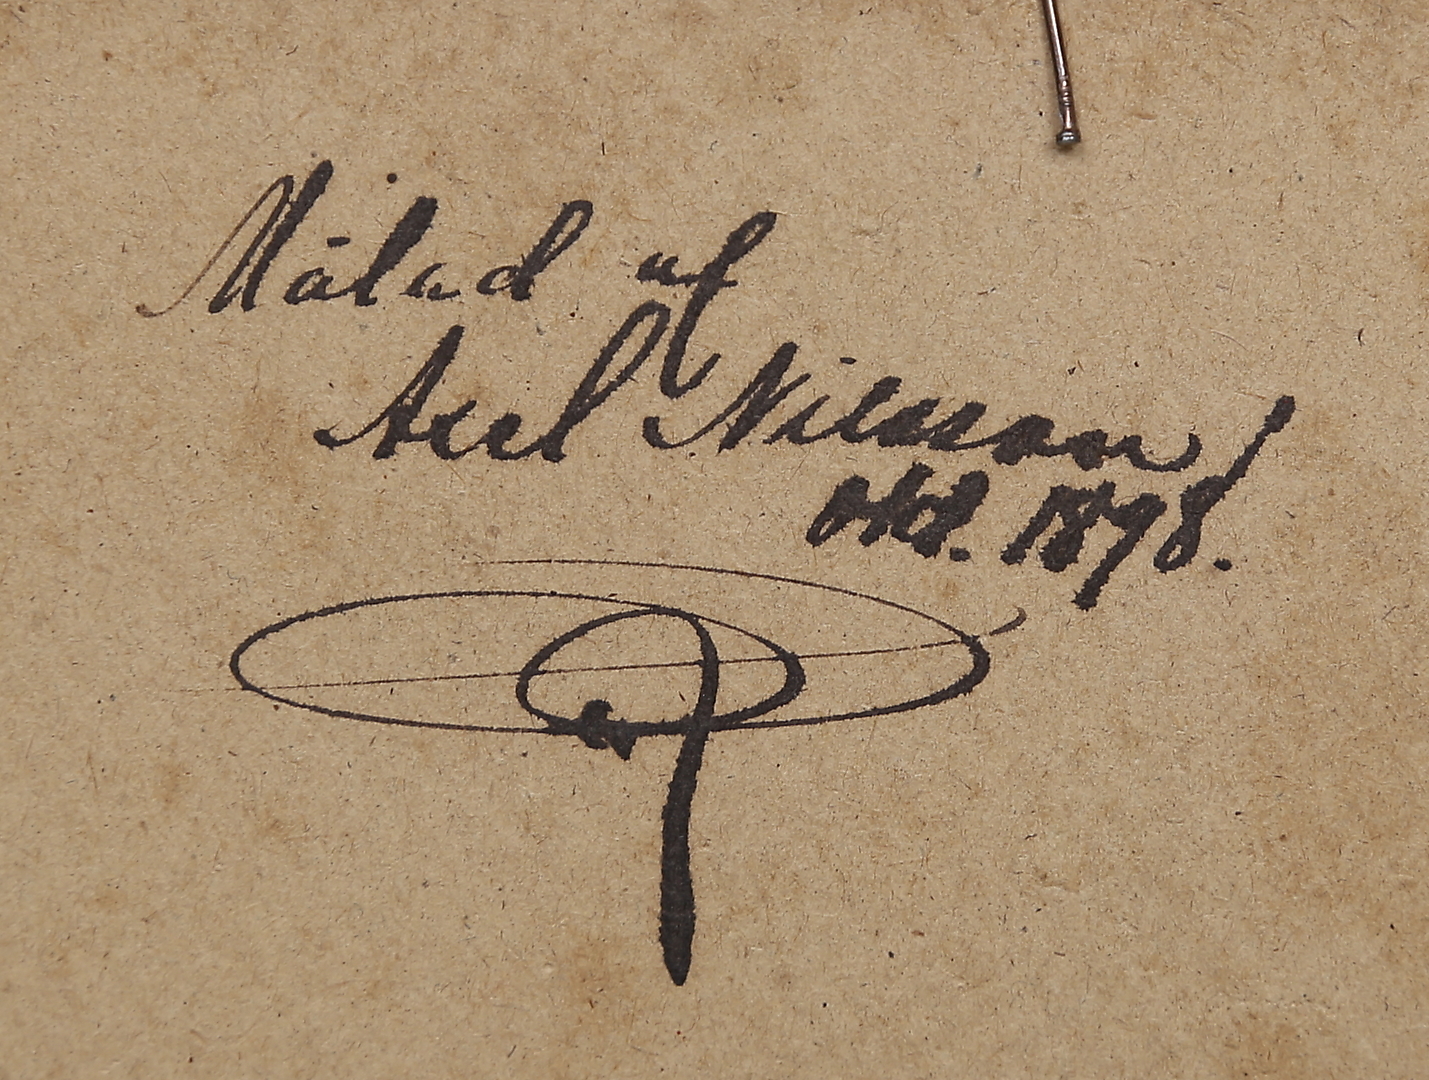 Målad af
Axel Nilsson!
Okt. 1898.